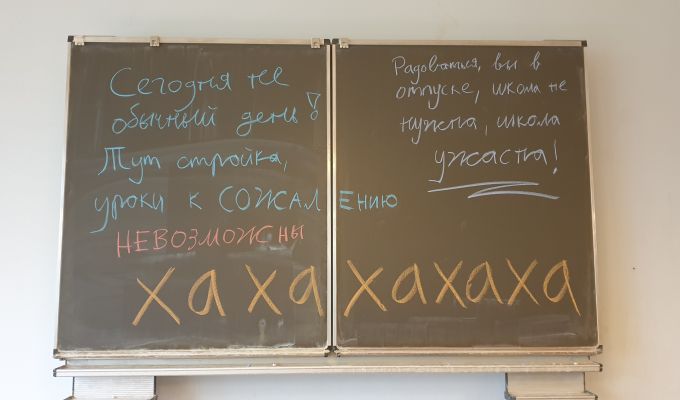 Сегодня не
обычный день!
Тут стройка,
уроки к СОЖАЛЕНИЮ
НЕВОЗМОЖНЫ
Радоваться, вы в
отпуске, школа не
нужна, школа
ужастна!
хаха хахаха